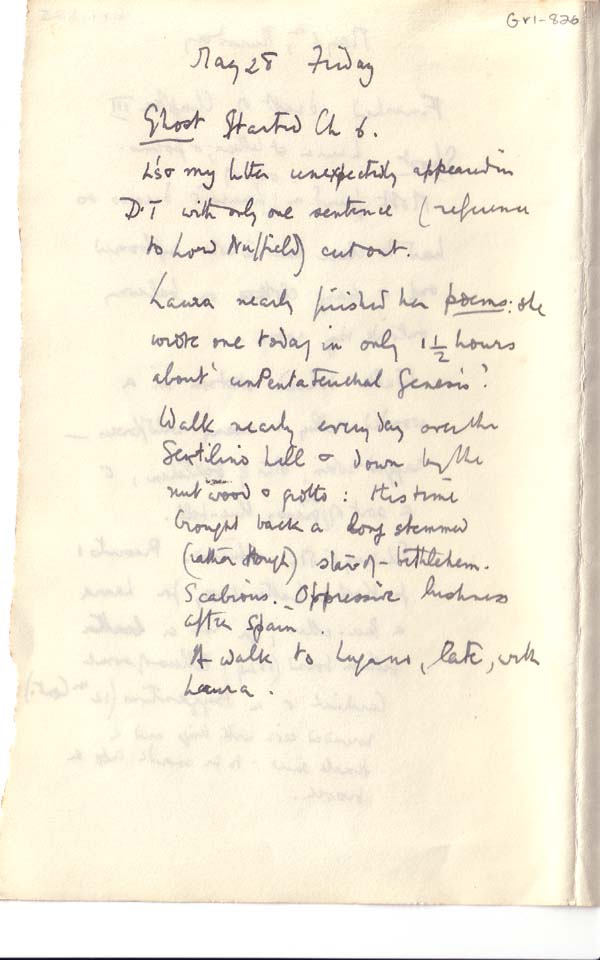 GV1-826
May 28 Friday
Ghost Started Ch 6.
L's & my letter unexpectedly appeared in
D.T with only one sentence (reference
to Lord Nuffield) cut out.
Laura nearly finished her poems: she
wrote one today in only 1½ hours
about 'unPentateuchal Genesis'.
Walk nearly every day over the
Sentilino hill & down by the
nut wood & grotto: this time
brought back a long stemmed
(rather tough) star-of-bethlehem.
Scabious. Oppressive lushness
after Spain.
A walk to Lugano, late, with
Laura.